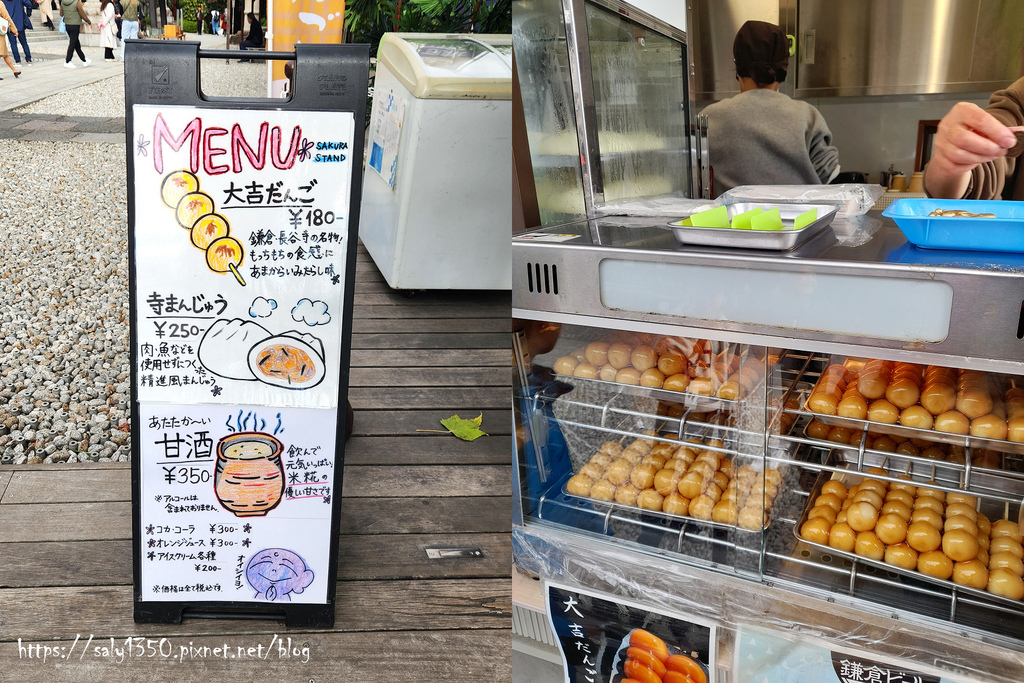 MENU
SAKURA
STAND
大吉だんご
¥180-
鎌倉・長谷寺の名物!
もっちもちの食感に
あまからいみたらし味
寺まんじゅう
¥250-
肉・魚などを
使用せずにつくった
精進風まんじゅう
あたたか〜い
甘酒
¥350
飲んで
元気いっぱい。
米糀の
優しい甘さです
※アルコールは
含まれておりません。
コカ・コーラ ¥300-
オレンジジュース ¥300-
アイスクリーム各種
¥200-
オイシイヨ
※価格は全て税込です。
https://saly1350.pixnet.net/blog
大吉だんご
鎌倉ビール